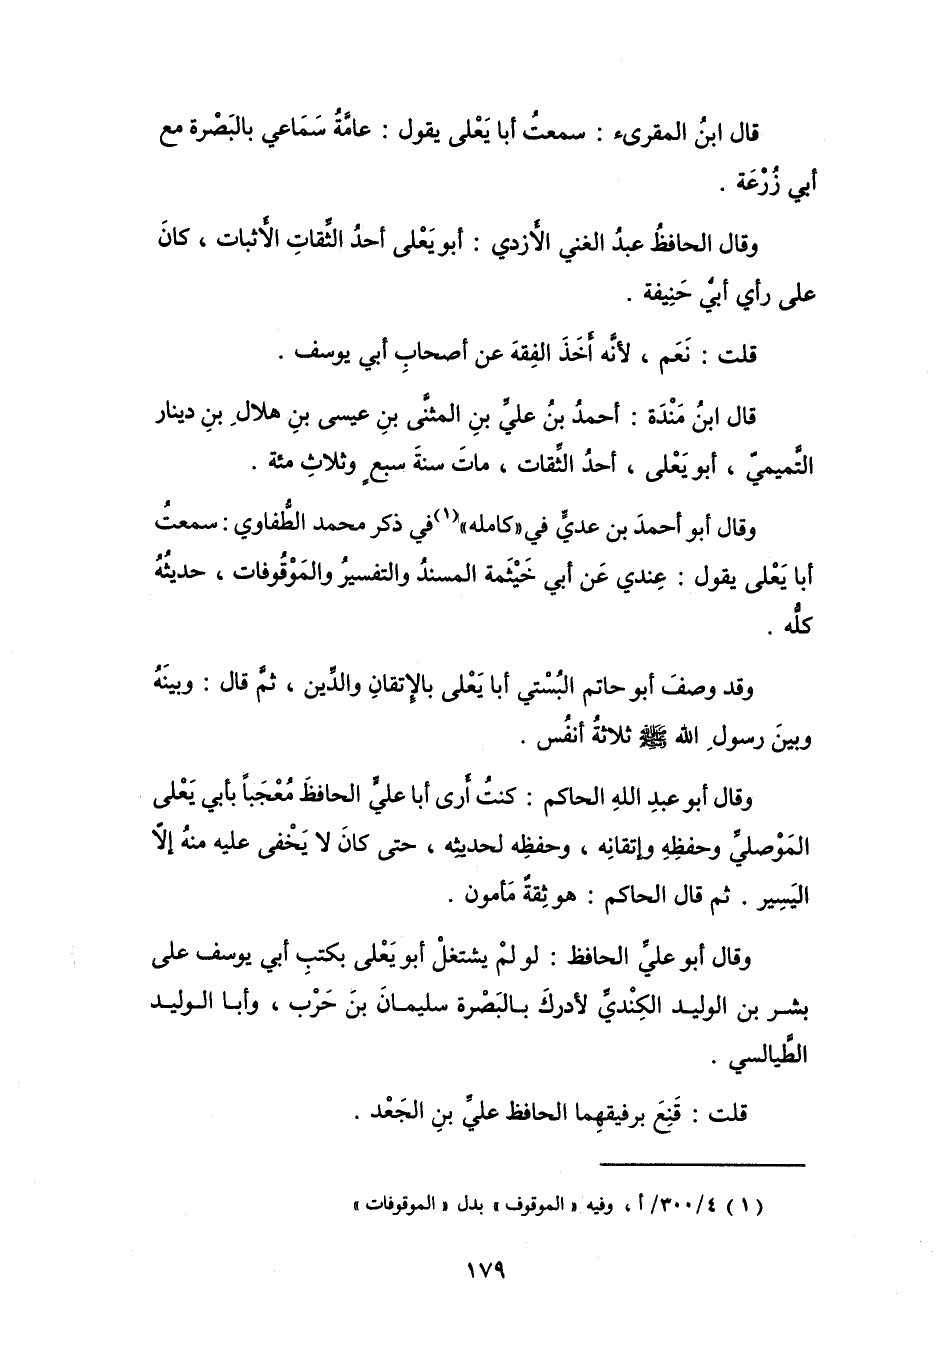 قال ابنُ المقرىء : سمعتُ أبا يَعْلى يقول : عامَّةُ سَمَاعي بالبَصْرة مع
أبي زُرْعَة .
وقال الحافظُ عبدُ الغني الأَزدي : أبو يَعْلى أحدُ الثِّقاتِ الأَثبات ، كانَ
على رأي أبي حَنِيفة .
قلت : نَعَم ، لأنَّه أَخَذَ الفِقهَ عن أصحابِ أبي يوسف .
قال ابنُ مَنْدَة : أحمدُ بنُ عليِّ بنِ المثنَّى بنِ عيسى بنِ هلالِ بنِ دينار
التَّميميّ ، أبو يَعْلى ، أحدُ الثِّقات ، ماتَ سنةَ سبعٍ وثلاثِ مئة .
وقال أبو أحمدَ بن عديٍّ في «كامله»(١) في ذكر محمد الطُّفاوي : سمعتُ
أبا يَعْلى يقول : عِندي عَن أبي خَيْثَمة المسندُ والتفسيرُ والمَوْقُوفات ، حديثُهُ
كلُّه .
وقد وصفَ أبو حاتم البُسْتي أبا يَعْلى بالإِتقانِ والدِّين ، ثمَّ قال : وبينَهُ
وبينَ رسولِ الله ﷺ ثلاثةُ أنفُس .
وقال أبو عبدِ اللهِ الحاكم : كنتُ أَرى أبا عليٍّ الحافظَ مُعْجَباً بأبي يَعْلى
المَوْصليِّ وحفظِهِ وإتقانِه ، وحفظِه لحديثِه ، حتى كانَ لا يَخْفى عليه منهُ إلاّ
اليَسِير . ثم قال الحاكم : هو ثِقةٌ مَأمون .
وقال أبو عليِّ الحافظ : لو لمْ يشتغلْ أبو يَعْلى بكتبِ أبي يوسف على
بشر بن الوليد الكِنْديِّ لأدركَ بالبَصْرة سليمانَ بنَ حَرْب ، وأبا الوليد
الطَّيالسي .
قلت : قَنِعَ برفيقهِما الحافظ عليِّ بنِ الجَعْد .
(١) ٣٠٠/٤/ أ ، وفيه « الموقوف » بدل « الموقوفات »
١٧٩